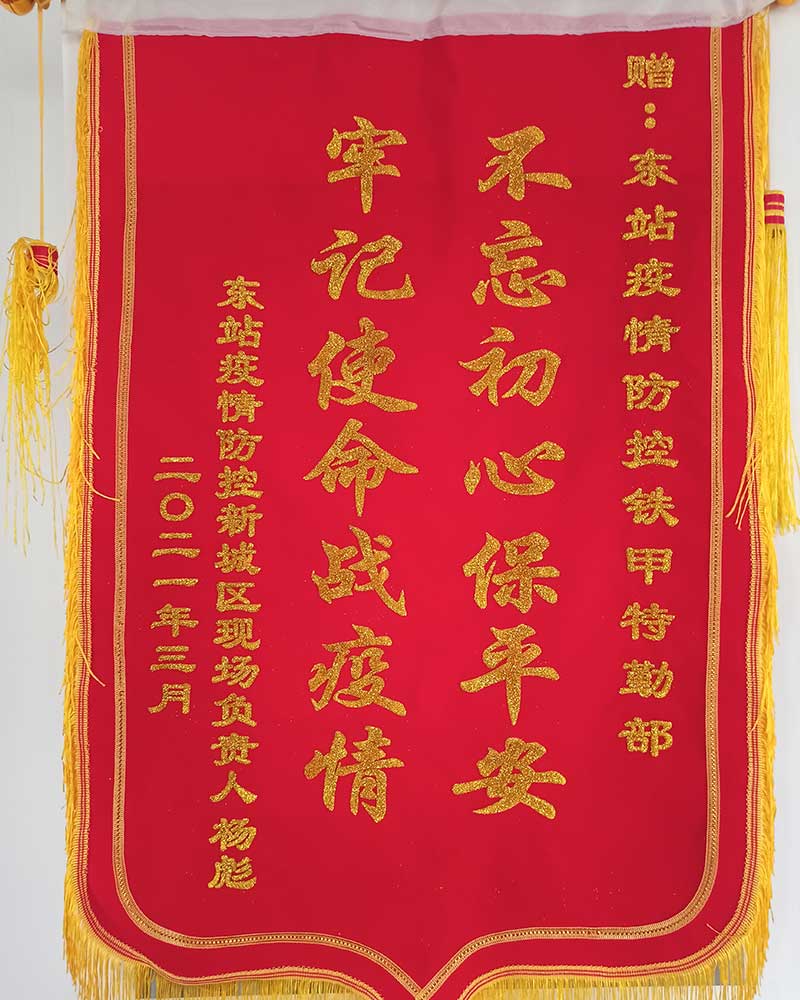 赠：东站疫情防控铁甲特勤部
不忘初心保平安
牢记使命战疫情
东站疫情防控新城区现场负责人杨彪
二〇二一年三月